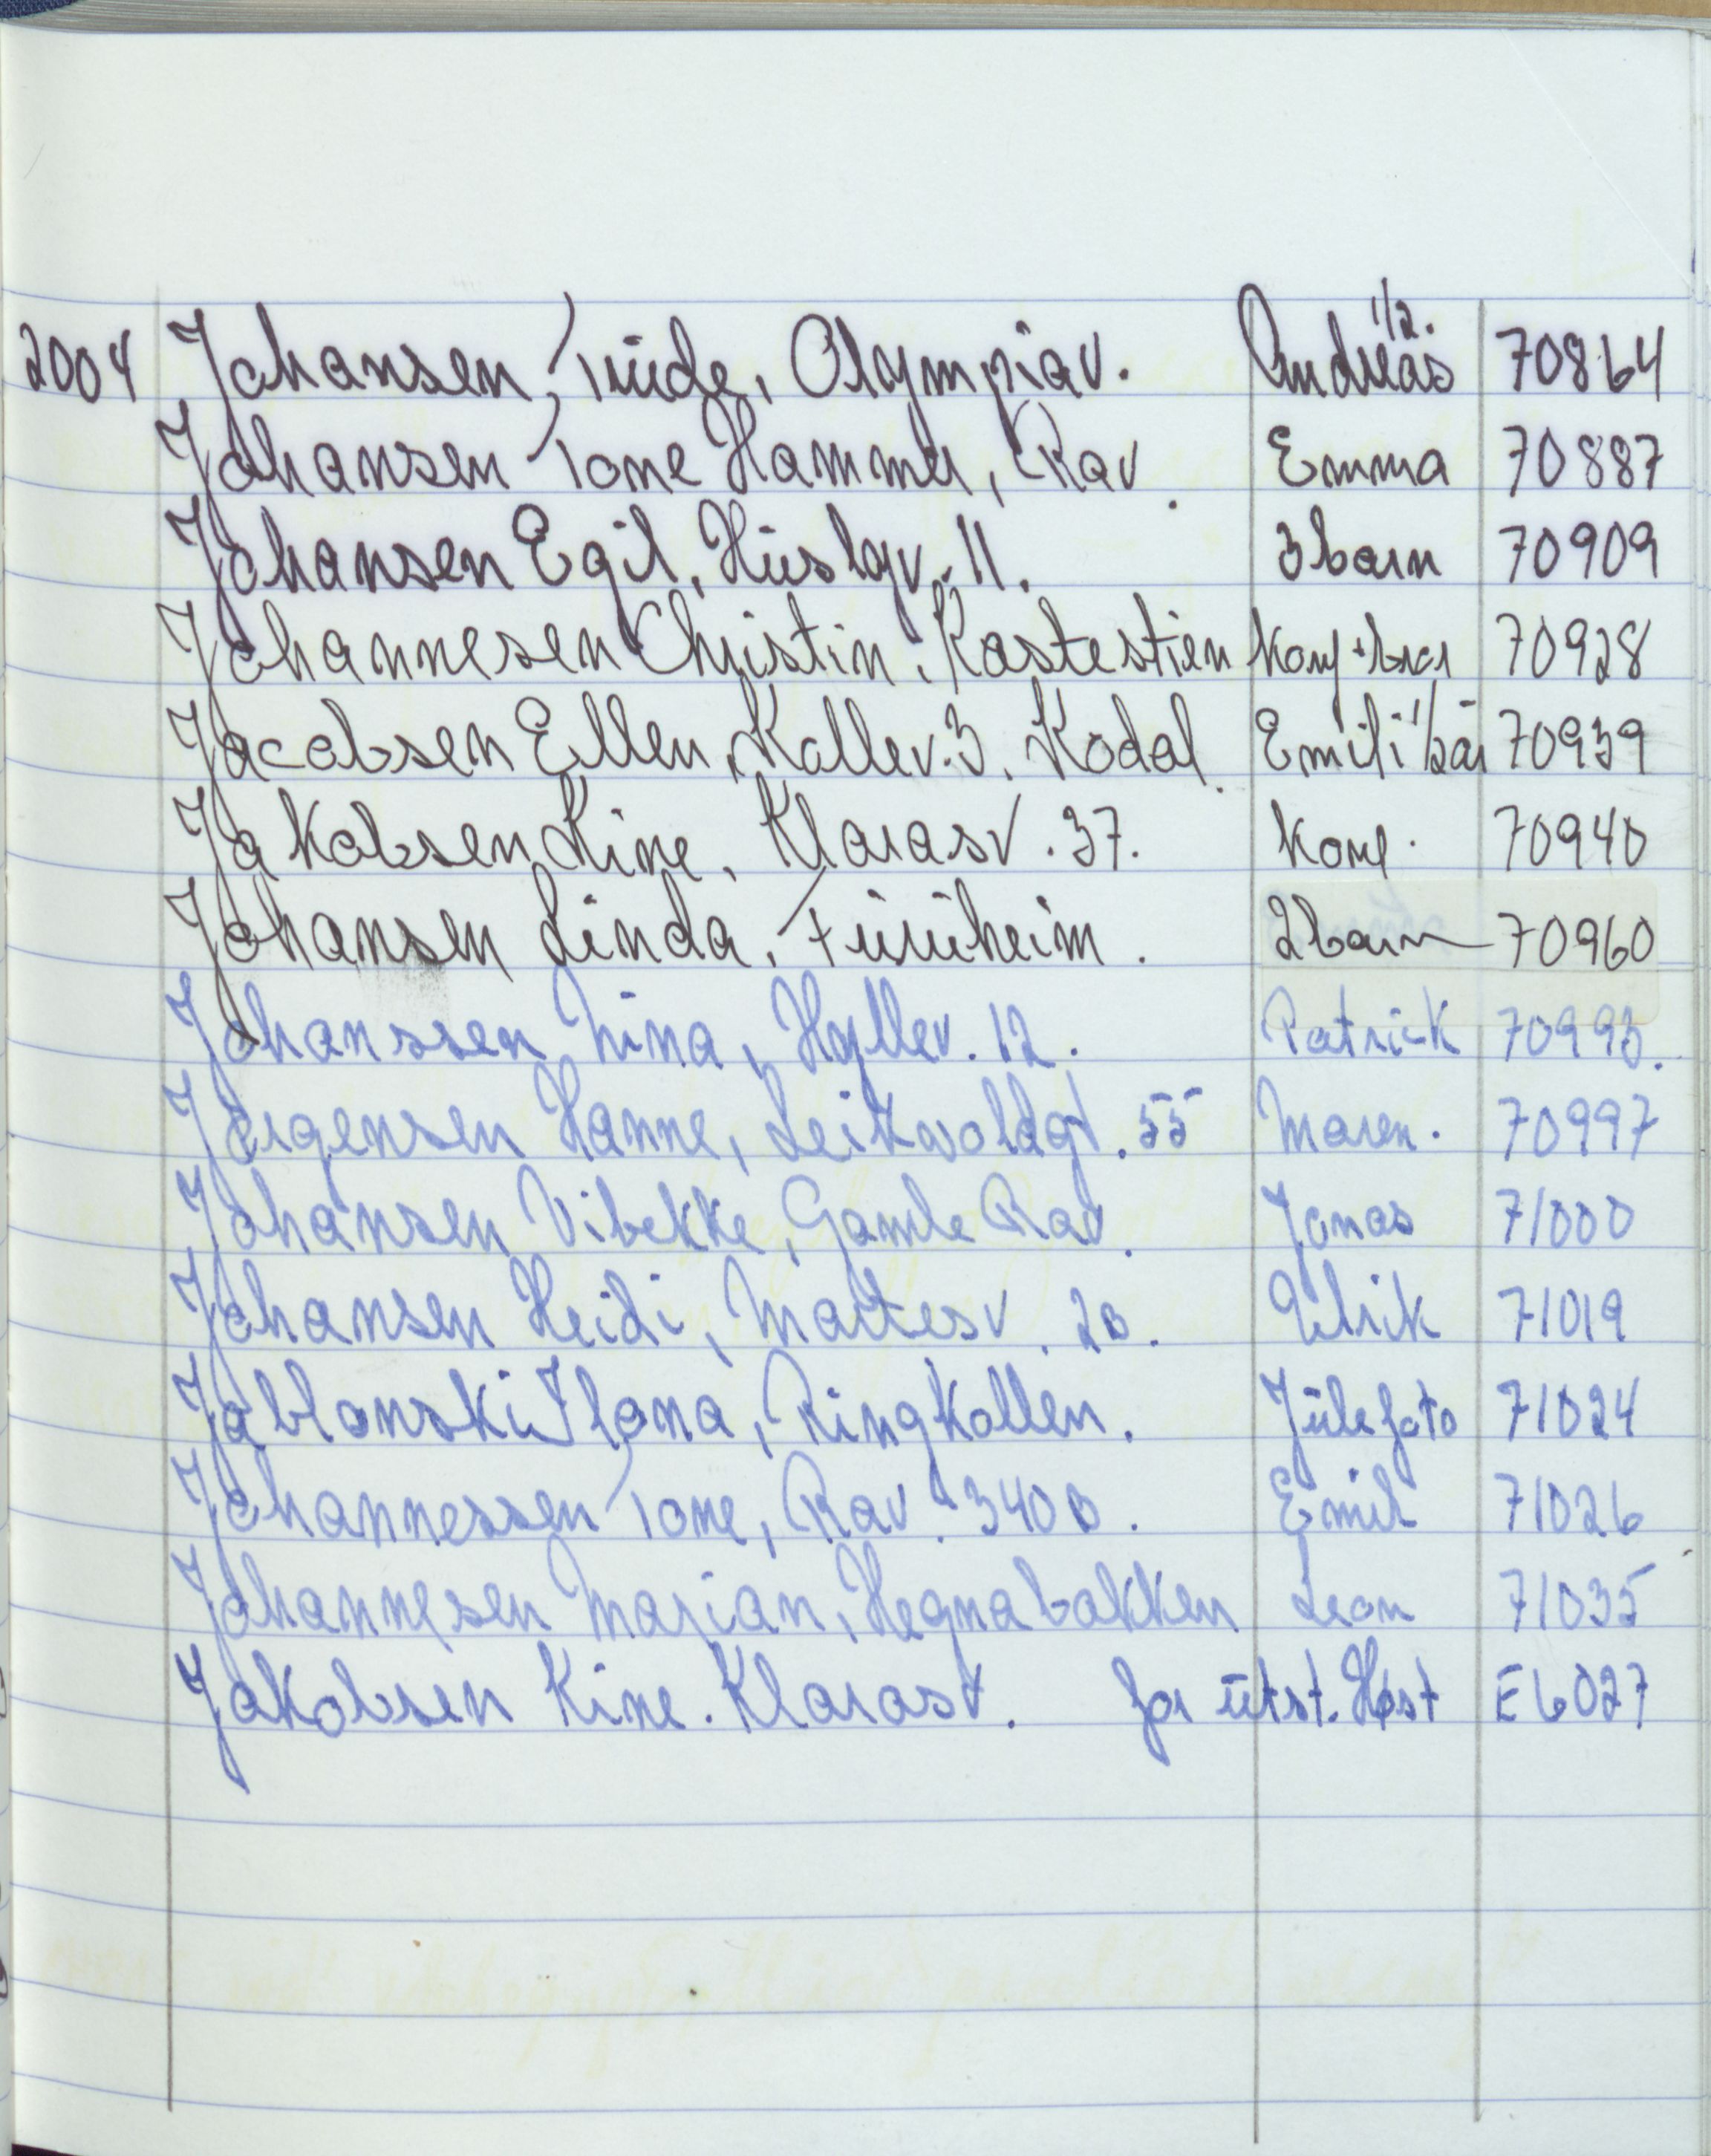 2004 Johansen, Trude, Olympiav. Andreas 1/2. 70864
Johansen Tone Hammer, Rav. Emma 70887
Johansen Egil, Huslgv. 11. 3 barn 70909
Johannesen Christin, Rastestien Konf + bror 70928
Jacobsen Ellen, Kallev. 3, Kodal. Emili 70939
Jakobsen Kine, Klarasv. 37. Konf. 70940
Johansen Linda, Furuheim. 2 barn 70960
Johanssen Nina, Hyllev. 12. Patrick 70993.
Jørgensen Hanne, Leikvoldgt. 55 Maren. 70997
Johansen Vibekke, Gamle Rav. Jonas 71000
Johansen Heidi, Martesv. 20. Ulrik 71019
Jablonski Ilona, Ringkollen. Julefoto 71024
Johannessen Tone, Rav. 340 B. Emil 71026
Johannesen Marian, Hegnabakken Leon 71035
Jakobsen Kine. Klarasv. for utst. Høst E6027